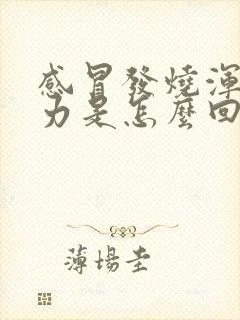 感冒發燒渾
力是怎麼回
薄場圭